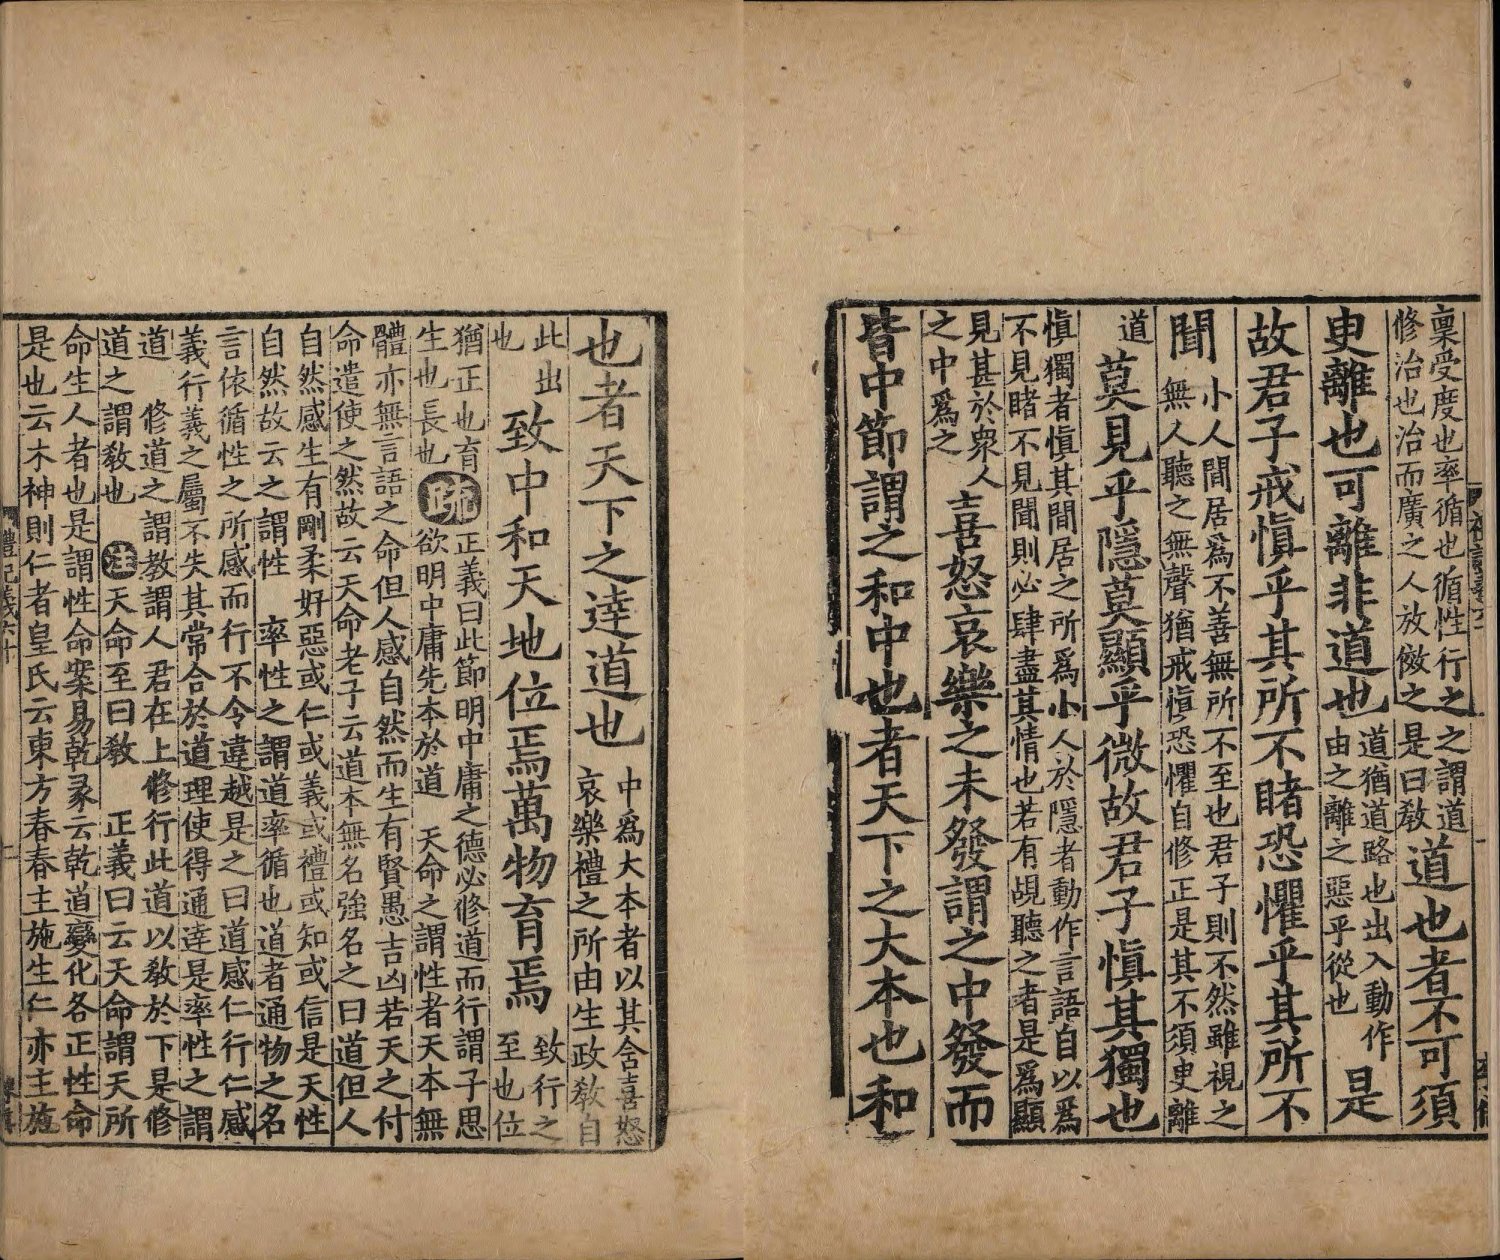 稟受度也率循也循性行之之謂道
修治也治而廣之人放傚之是曰敎
道也者不可須
臾離也可離非道也
道猶道路也出入動作
由之離之惡乎從也
是
故君子戒愼乎其所不睹恐懼乎其所不
聞
小人閒居爲不善無所不至也君子則不然雖視之
無人聽之無聲猶戒愼恐懼自修正是其不須臾離
道
莫見乎隱莫顯乎微故君子愼其獨也
愼獨者愼其閒居之所爲小人於隱者動作言語自以爲
不見睹不見聞則必肆盡其情也若有覘聽之者是爲顯
見甚於衆人
之中爲之
喜怒哀樂之未發謂之中發而
皆中節謂之和中也者天下之大本也和
也者天下之達道也
中爲大本者以其含喜怒
哀樂禮之所由生政敎自
此出
也
致中和天地位焉萬物育焉
致行之
至也位
猶正也育
生也長也
疏
正義曰此節明中庸之德必修道而行謂子思
欲明中庸先本於道 天命之謂性者天本無
體亦無言語之命但人感自然而生有賢愚吉凶若天之付
命遣使之然故云天命老子云道本無名強名之曰道但人
自然感生有剛柔好惡或仁或義或禮或知或信是天性
自然故云之謂性 率性之謂道率循也道者通物之名
言依循性之所感而行不令違越是之曰道感仁行仁感
義行義之屬不失其常合於道理使得通達是率性之謂
道 修道之謂敎謂人君在上修行此道以敎於下是修
道之謂敎也 注天命至曰敎 正義曰云天命謂天所
命生人者也是謂性命案易乾彖云乾道變化各正性命
是也云木神則仁者皇氏云東方春春主施生仁亦主施
禮記義六十